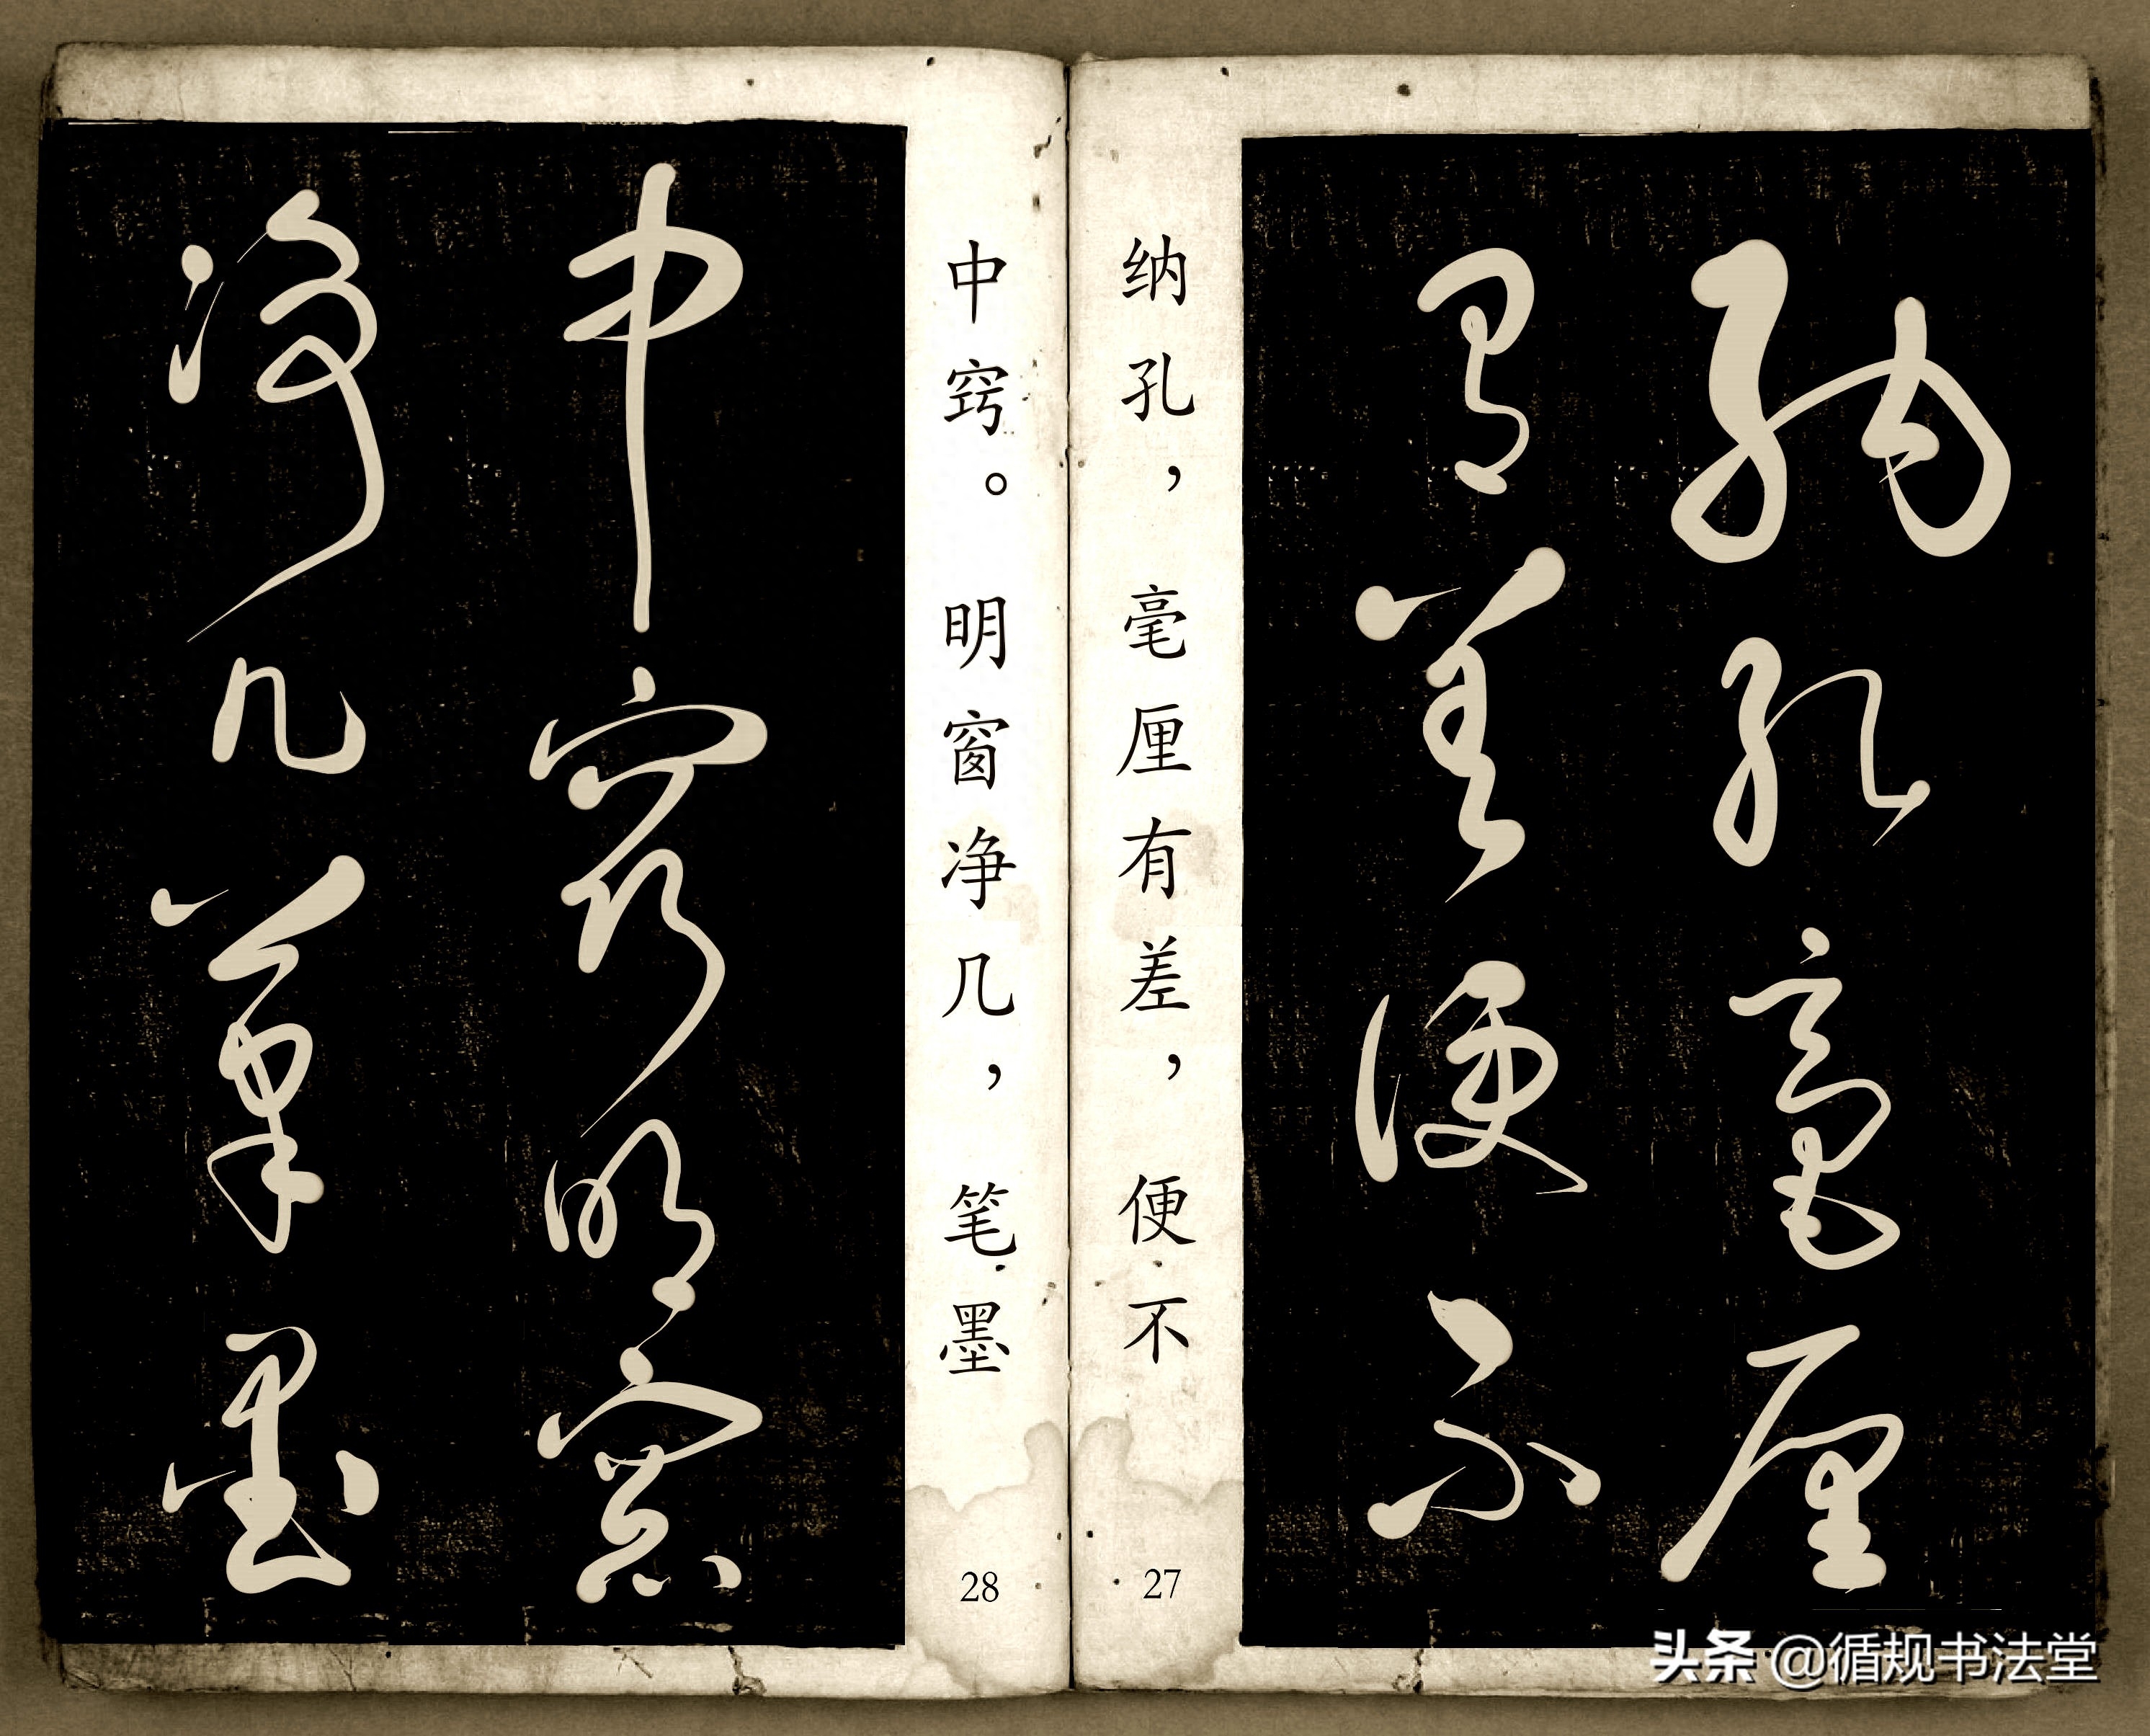 纳孔毫厘
有差便不
纳孔，毫厘有差，便不
27
中窍。明窗净几，笔墨
28
中窍明窗
净几笔墨
头条 @循规书法堂